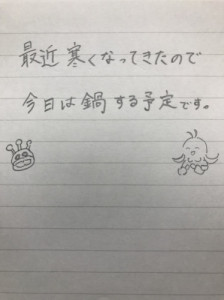 最近寒くなってきたので
今日は鍋する予定です。